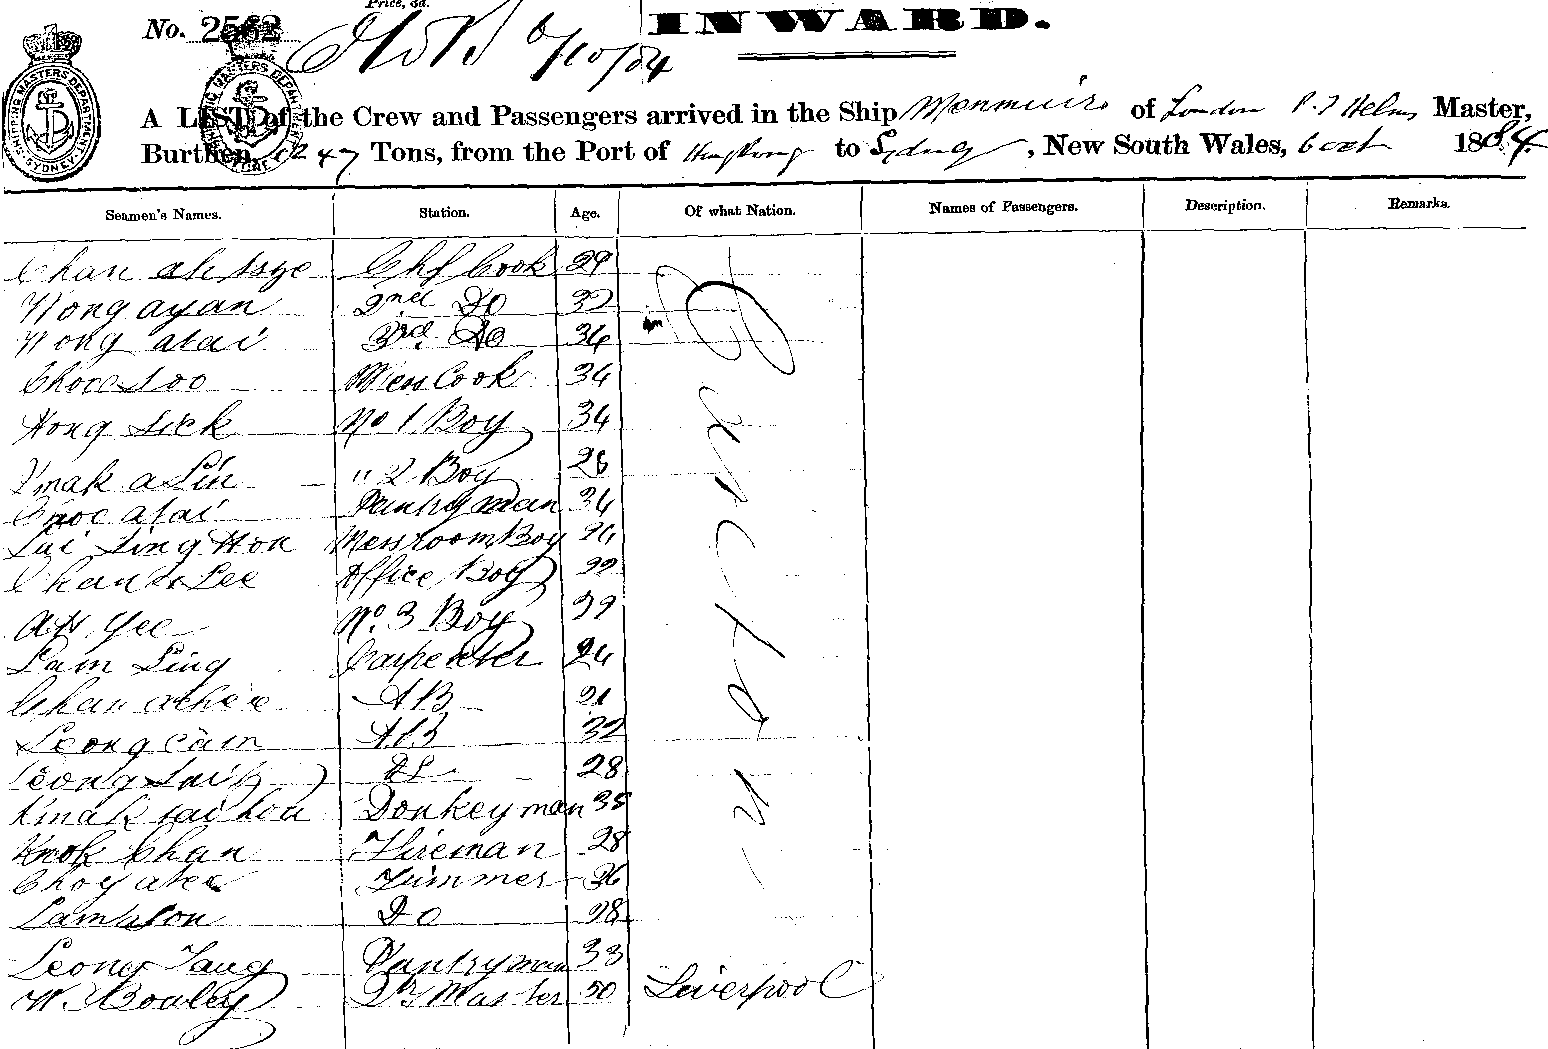 Price, 3d.
No. 2562 INWARD.
6/10/84
SHIPPING MASTERS DEPARTMENT SYDNEY
A LIST of the Crew and Passengers arrived in the Ship Menmuir of London P. T Helms Master,
Burthen 1247 Tons, from the Port of Hongkong to Sydney, New South Wales, 6 Oct 1884
Seamen's Names. Station. Age. Of what Nation. Names of Passengers. Description. Remarks.
Canton
Chan ah 29
Wong ayan 2nd Do 32
Wong atai 3rd Do 34
Mess Cook 34
Hong Sick No 1 Boy 34
a Lin " 2 Boy
atai Pantryman 34
Messroom Boy
Chan Lee Office Boy 22
Ah Yee No. 3 Boy
Lam Ling Carpenter 24
Chan achee AB 21
Leong cam AB 32
Leong 28
Donkeyman 38
Chan Fireman 28
Choy Trimmer 26
Lam Do 28
Leong Tang Pantryman 33
W. Bowley Qr Master 50 Liverpool